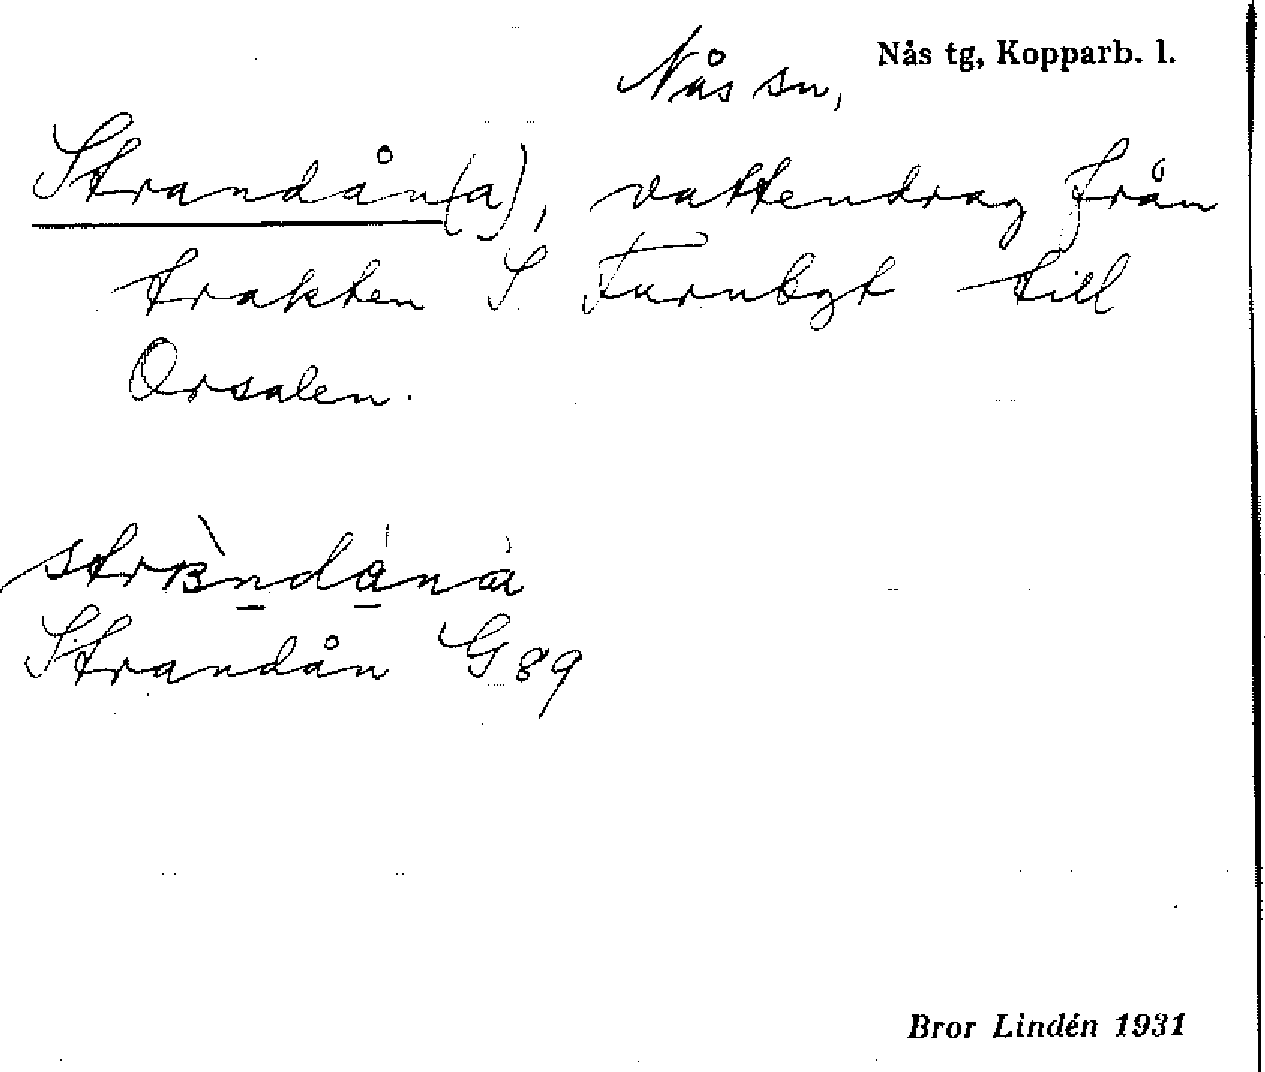 Nås sn, Nås tg, Kopparb. l.
Strandån(a), vattendrag från
trakten S Furubgt till
Orsalen.
Strandån G 89
Bror Lindén 1931